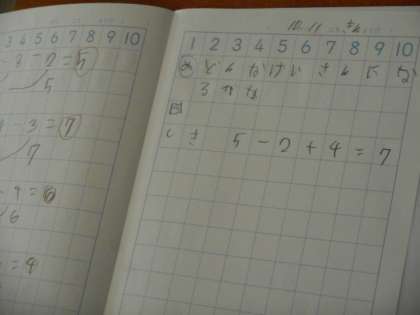 3 4 5 6 7 8 9 10
- 3 - 2 = 5
5
- 3 = 7
7
- 4 = 6
6
= 4
10.11 きん
1 2 3 4 5 6 7 8 9 10
め どんなけいさんに な
るかな
しき 5 - 2 + 4 = 7